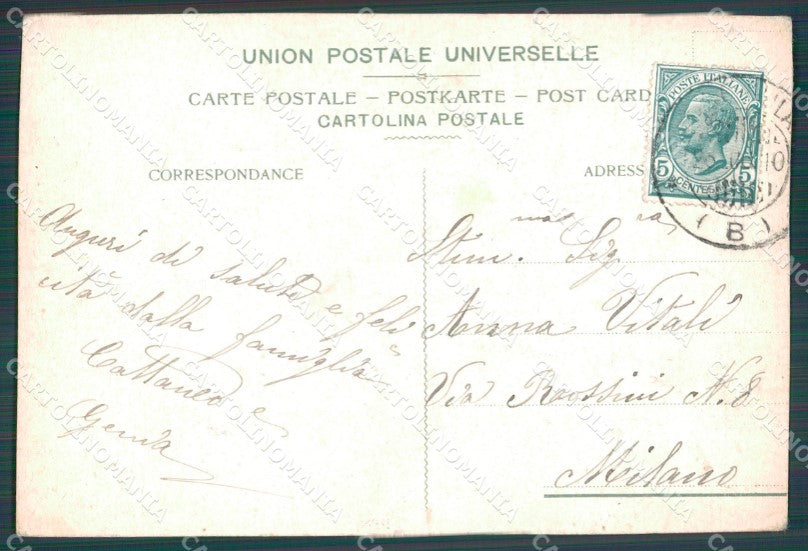 UNION POSTALE UNIVERSELLE
CARTE POSTALE – POSTKARTE – POST CARD
CARTOLINA POSTALE
CORRESPONDANCE
ADRESS
POSTE ITALIANE
5 5
CENTES
(B)
Auguri di salute e feli
cità dalla famiglia
Cattaneo e
Stim.ma Sig.ra
Anna Vitali
Via Rossini N. 8
Milano
CARTOLINOMANIA